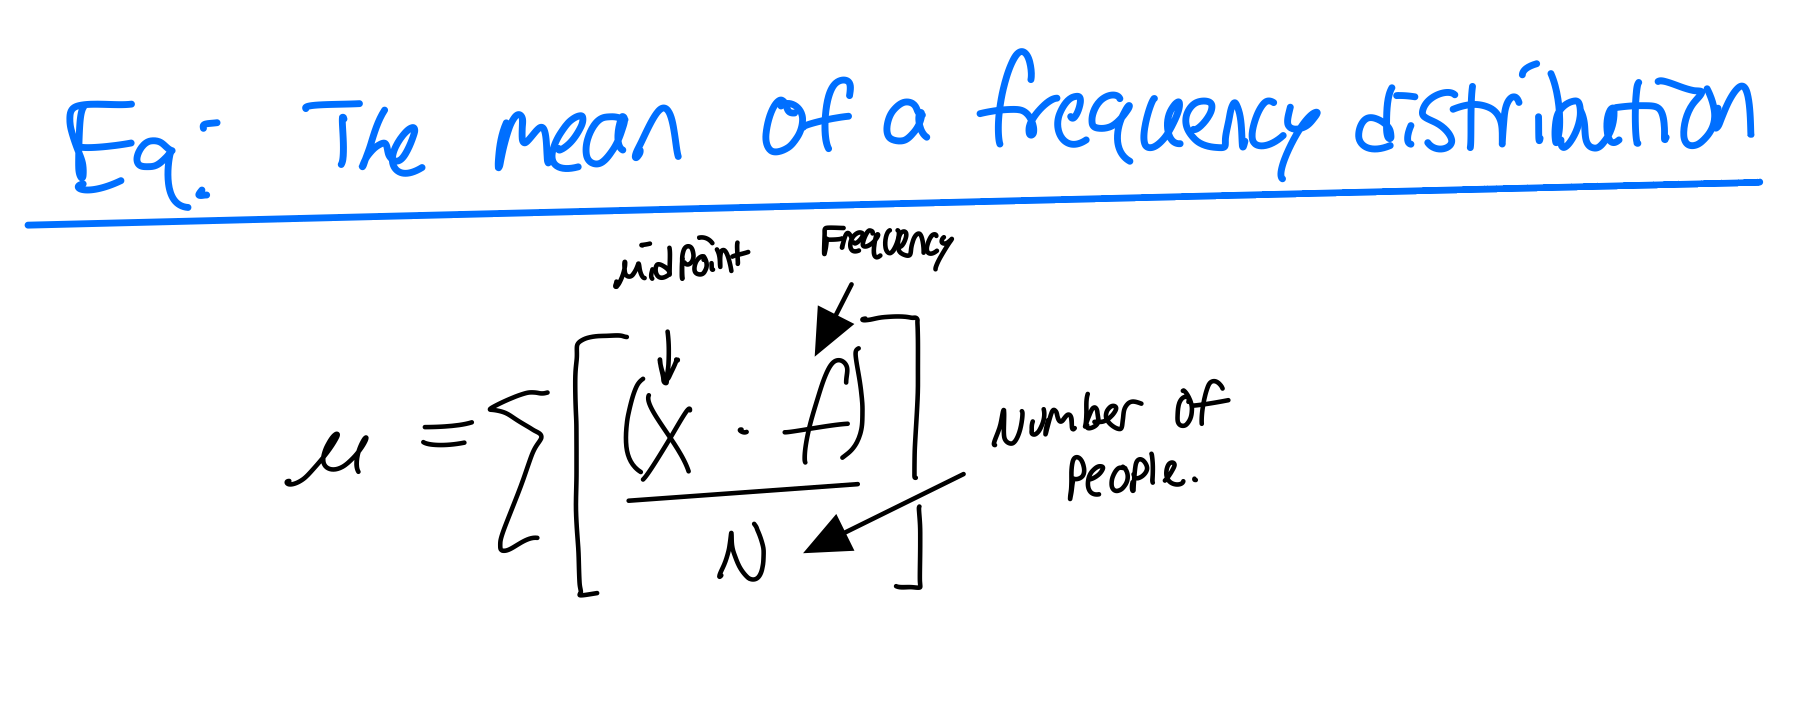 Eq: The mean of a frequency distribution
midpoint Frequency
μ = Σ [(x · f) / N]
Number of
people.